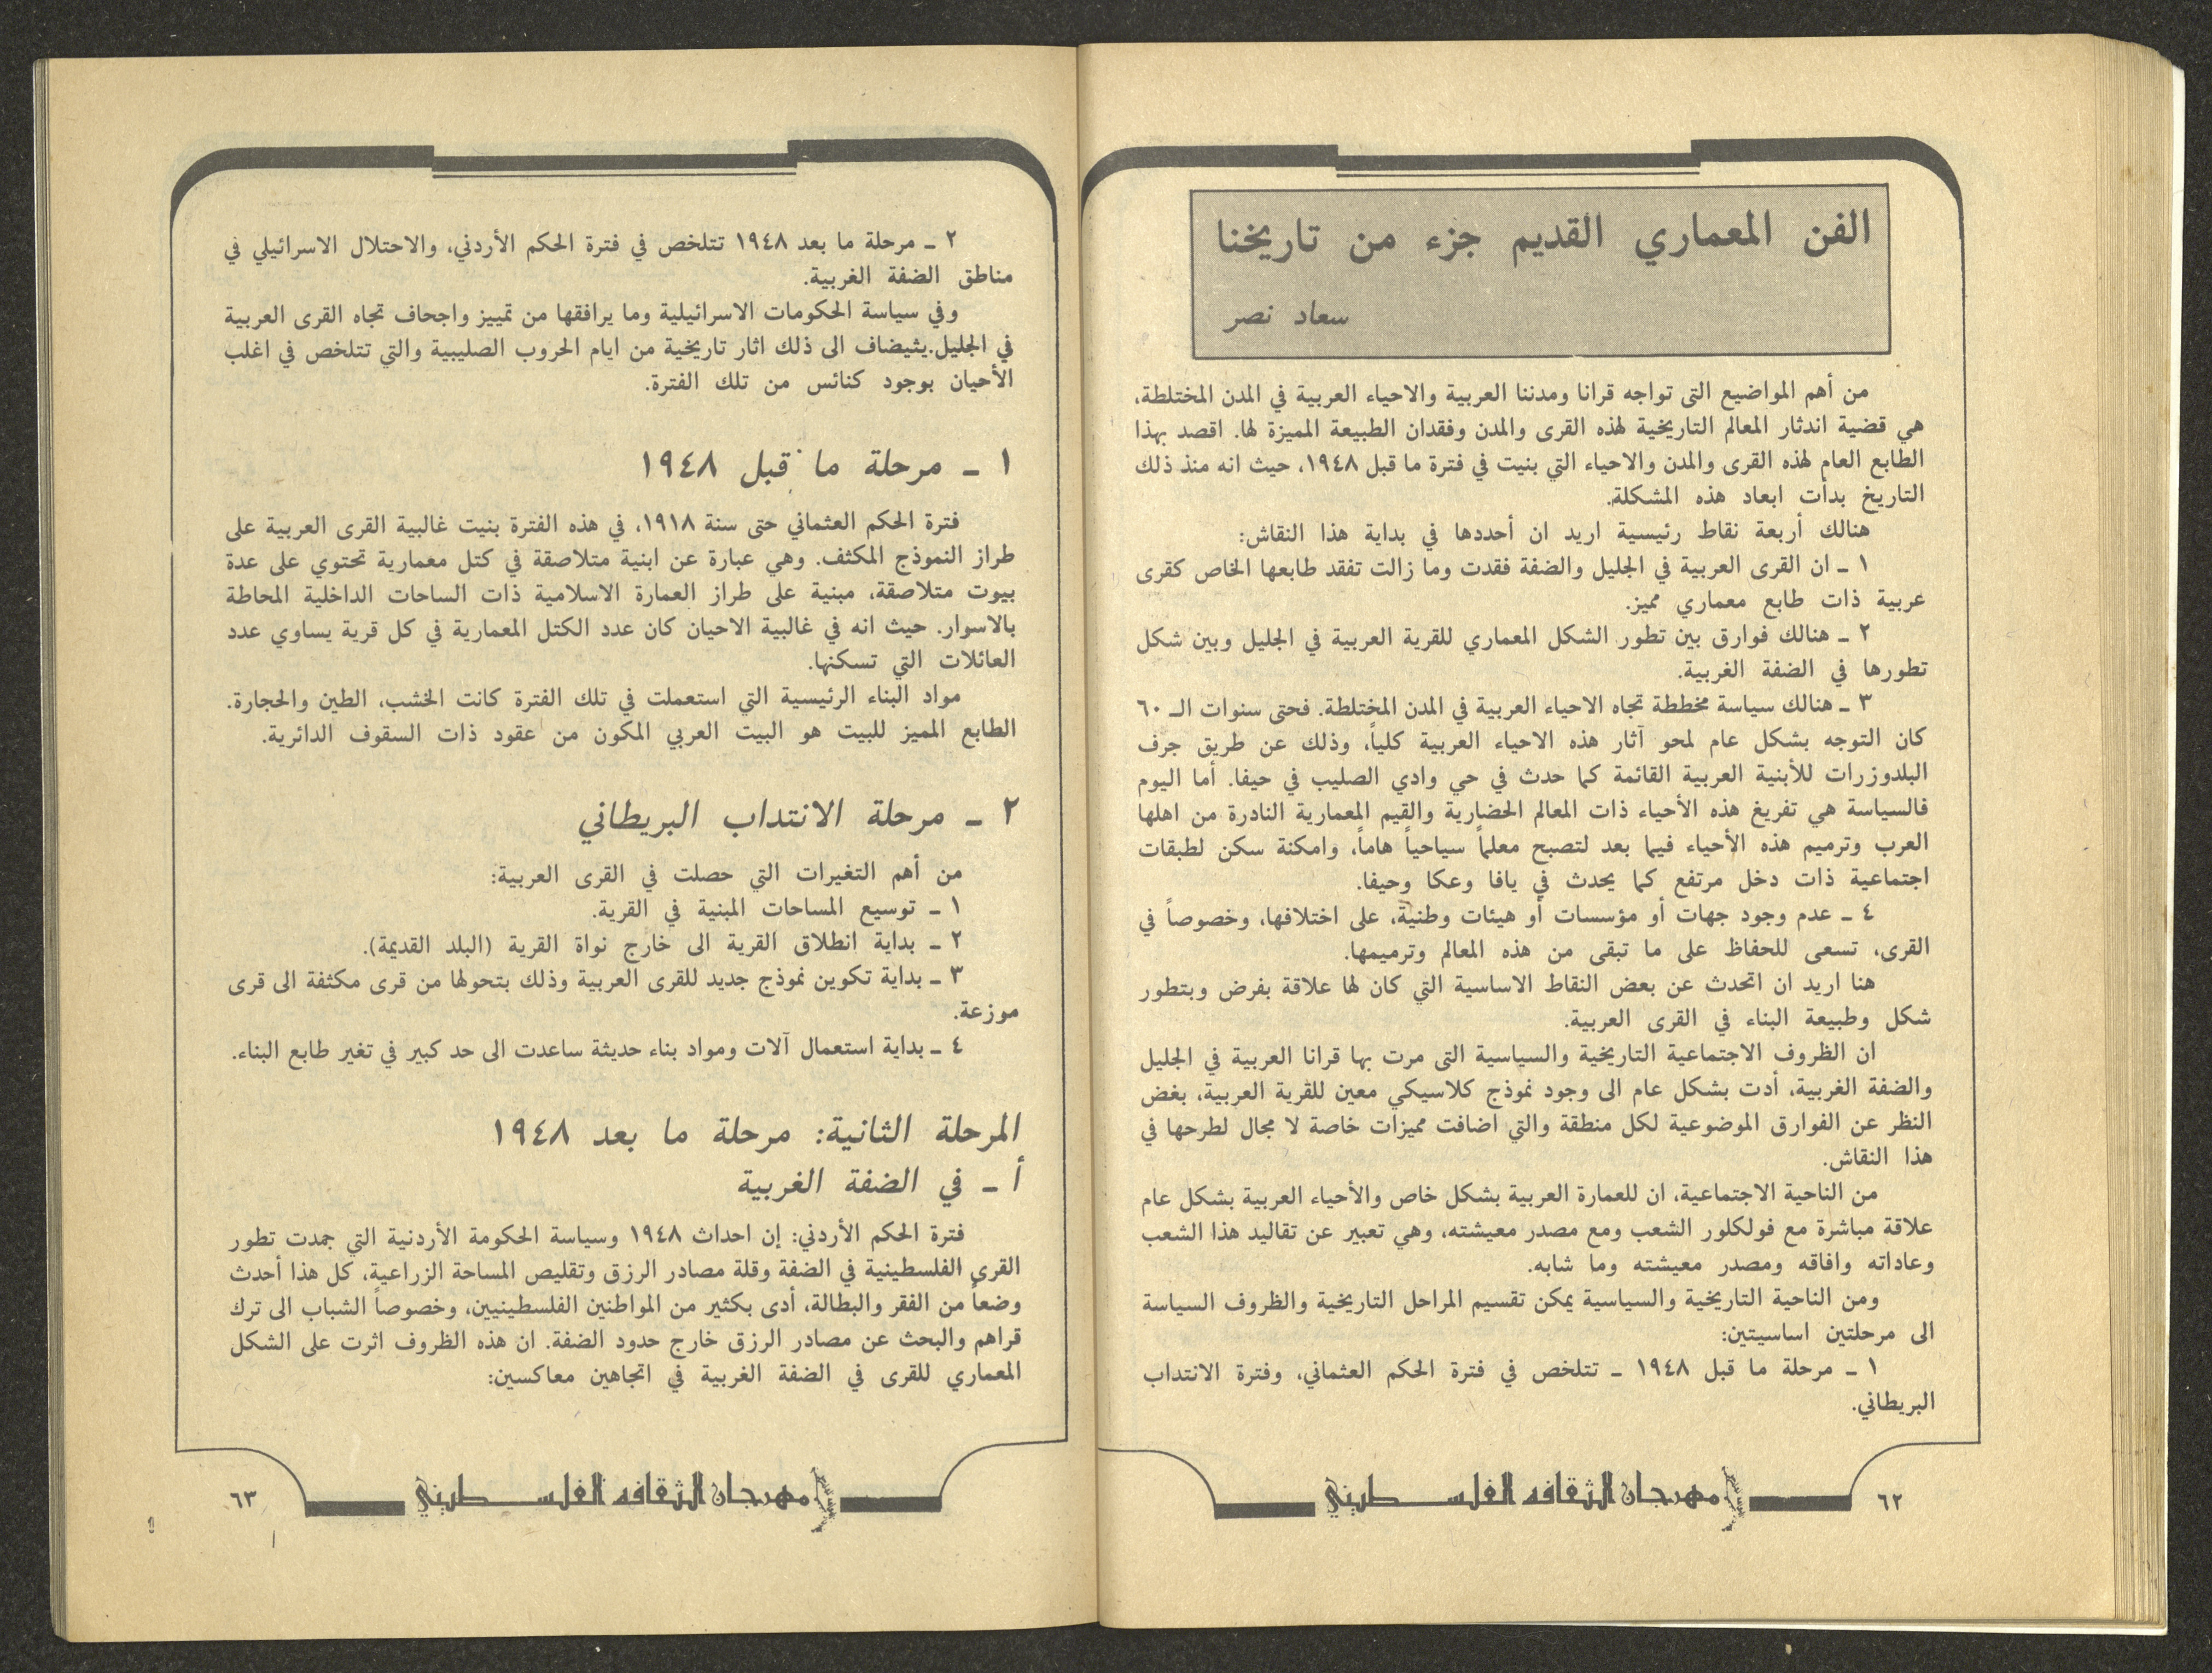 الفن المعماري القديم جزء من تاريخنا
سعاد نصر
من أهم المواضيع التى تواجه قرانا ومدننا العربية والاحياء العربية في المدن المختلطة،
هي قضية اندثار المعالم التاريخية لهذه القرى والمدن وفقدان الطبيعة المميزة لها. اقصد بهذا
الطابع العام لهذه القرى والمدن والاحياء التي بنيت في فترة ما قبل ١٩٤٨، حيث انه منذ ذلك
التاريخ بدأت ابعاد هذه المشكلة.
هنالك أربعة نقاط رئيسية اريد ان أحددها في بداية هذا النقاش:
١ ـ ان القرى العربية في الجليل والضفة فقدت وما زالت تفقد طابعها الخاص كقرى
عربية ذات طابع معماري مميز.
٢ ـ هنالك فوارق بين تطور الشكل المعماري للقرية العربية في الجليل وبين شكل
تطورها في الضفة الغربية.
٣ ـ هنالك سياسة مخططة تجاه الاحياء العربية في المدن المختلطة. فحتى سنوات الـ ٦٠
كان التوجه بشكل عام لمحو آثار هذه الاحياء العربية كلياً، وذلك عن طريق جرف
البلدوزرات للأبنية العربية القائمة كما حدث في حي وادي الصليب في حيفا. أما اليوم
فالسياسة هي تفريغ هذه الأحياء ذات المعالم الحضارية والقيم المعمارية النادرة من اهلها
العرب وترميم هذه الأحياء فيما بعد لتصبح معلماً سياحياً هاماً، وامكنة سكن لطبقات
اجتماعية ذات دخل مرتفع كما يحدث في يافا وعكا وحيفا.
٤ ـ عدم وجود جهات أو مؤسسات أو هيئات وطنية، على اختلافها، وخصوصاً في
القرى، تسعى للحفاظ على ما تبقى من هذه المعالم وترميمها.
هنا اريد ان اتحدث عن بعض النقاط الاساسية التي كان لها علاقة بفرض وبتطور
شكل وطبيعة البناء في القرى العربية.
ان الظروف الاجتماعية التاريخية والسياسية التى مرت بها قرانا العربية في الجليل
والضفة الغربية، أدت بشكل عام الى وجود نموذج كلاسيكي معين للقرية العربية، بغض
النظر عن الفوارق الموضوعية لكل منطقة والتي اضافت مميزات خاصة لا مجال لطرحها في
هذا النقاش.
من الناحية الاجتماعية، ان للعمارة العربية بشكل خاص والأحياء العربية بشكل عام
علاقة مباشرة مع فولكلور الشعب ومع مصدر معيشته، وهي تعبير عن تقاليد هذا الشعب
وعاداته وافاقه ومصدر معيشته وما شابه.
ومن الناحية التاريخية والسياسية يمكن تقسيم المراحل التاريخية والظروف السياسة
الى مرحلتين اساسيتين:
١ ـ مرحلة ما قبل ١٩٤٨ ـ تتلخص في فترة الحكم العثماني، وفترة الانتداب
البريطاني.
مهرجان الثقافه الفلسطيني
٦٢
٢ ـ مرحلة ما بعد ١٩٤٨ تتلخص في فترة الحكم الأردني، والاحتلال الاسرائيلي في
مناطق الضفة الغربية.
وفي سياسة الحكومات الاسرائيلية وما يرافقها من تمييز واجحاف تجاه القرى العربية
في الجليل.يثيضاف الى ذلك اثار تاريخية من ايام الحروب الصليبية والتي تتلخص في اغلب
الأحيان بوجود كنائس من تلك الفترة.
١ ـ مرحلة ما قبل ١٩٤٨
فترة الحكم العثماني حتى سنة ١٩١٨، في هذه الفترة بنيت غالبية القرى العربية على
طراز النموذج المكثف. وهي عبارة عن ابنية متلاصقة في كتل معمارية تحتوي على عدة
بيوت متلاصقة، مبنية على طراز العمارة الاسلامية ذات الساحات الداخلية المحاطة
بالاسوار. حيث انه في غالبية الاحيان كان عدد الكتل المعمارية في كل قرية يساوي عدد
العائلات التي تسكنها.
مواد البناء الرئيسية التي استعملت في تلك الفترة كانت الخشب، الطين والحجارة.
الطابع المميز للبيت هو البيت العربي المكون من عقود ذات السقوف الدائرية.
٢ ـ مرحلة الانتداب البريطاني
من أهم التغيرات التي حصلت في القرى العربية:
١ ـ توسيع المساحات المبنية في القرية.
٢ ـ بداية انطلاق القرية الى خارج نواة القرية (البلد القديمة).
٣ ـ بداية تكوين نموذج جديد للقرى العربية وذلك بتحولها من قرى مكثفة الى قرى
موزعة.
٤ ـ بداية استعمال آلات ومواد بناء حديثة ساعدت الى حد كبير في تغير طابع البناء.
المرحلة الثانية: مرحلة ما بعد ١٩٤٨
أ ـ في الضفة الغربية
فترة الحكم الأردني: إن احداث ١٩٤٨ وسياسة الحكومة الأردنية التي جمدت تطور
القرى الفلسطينية في الضفة وقلة مصادر الرزق وتقليص المساحة الزراعية، كل هذا أحدث
وضعاً من الفقر والبطالة، أدى بكثير من المواطنين الفلسطينيين، وخصوصاً الشباب الى ترك
قراهم والبحث عن مصادر الرزق خارج حدود الضفة. ان هذه الظروف اثرت على الشكل
المعماري للقرى في الضفة الغربية في اتجاهين معاكسين:
مهرجان الثقافه الفلسطيني
٦٣